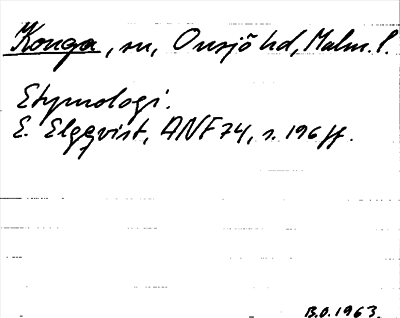 Konga, sn, Onsjö hd, Malm. l.
Etymologi.
E. Elgqvist, ANF 74, s. 196 ff.
B.O. 1963.